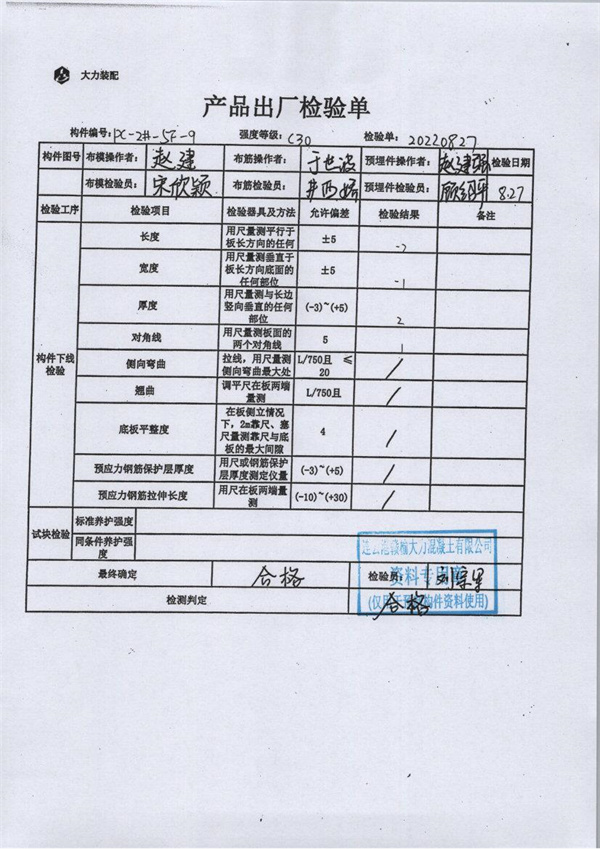 大力装配
产品出厂检验单
构件编号: PC-2#-5F-9 强度等级: C30 检验单: 20220827
构件图号 布模操作者: 赵建 布筋操作者: 于世波 预埋件操作者: 赵建强 检验日期
布模检验员: 宋欣颖 布筋检验员: 预埋件检验员: 8.27
检验工序 检验项目 检验器具及方法 允许偏差 检验结果 备注
构件下线检验
长度 用尺量测平行于板长方向的任何 ±5 -2
宽度 用尺量测垂直于板长方向底面的任何部位 ±5 -1
厚度 用尺量测与长边竖向垂直的任何部位 (-3)~(+5) 2
对角线 用尺量测板面的两个对角线 5 1
侧向弯曲 拉线，用尺量测侧向弯曲最大处 L/750且 ≤20 /
翘曲 调平尺在板两端量测 L/750且 /
底板平整度 在板侧立情况下，2m靠尺、塞尺量测靠尺与底板的最大间隙 4 /
预应力钢筋保护层厚度 用尺或钢筋保护层厚度测定仪量 (-3)~(+5) /
预应力钢筋拉伸长度 用尺在板两端量测 (-10)~(+30) /
试块检验 标准养护强度
同条件养护强度
连云港赣榆大力混凝土有限公司
最终确定 合格 检验员:
资料专用章
检测判定 合格
(仅用于预制构件资料使用)